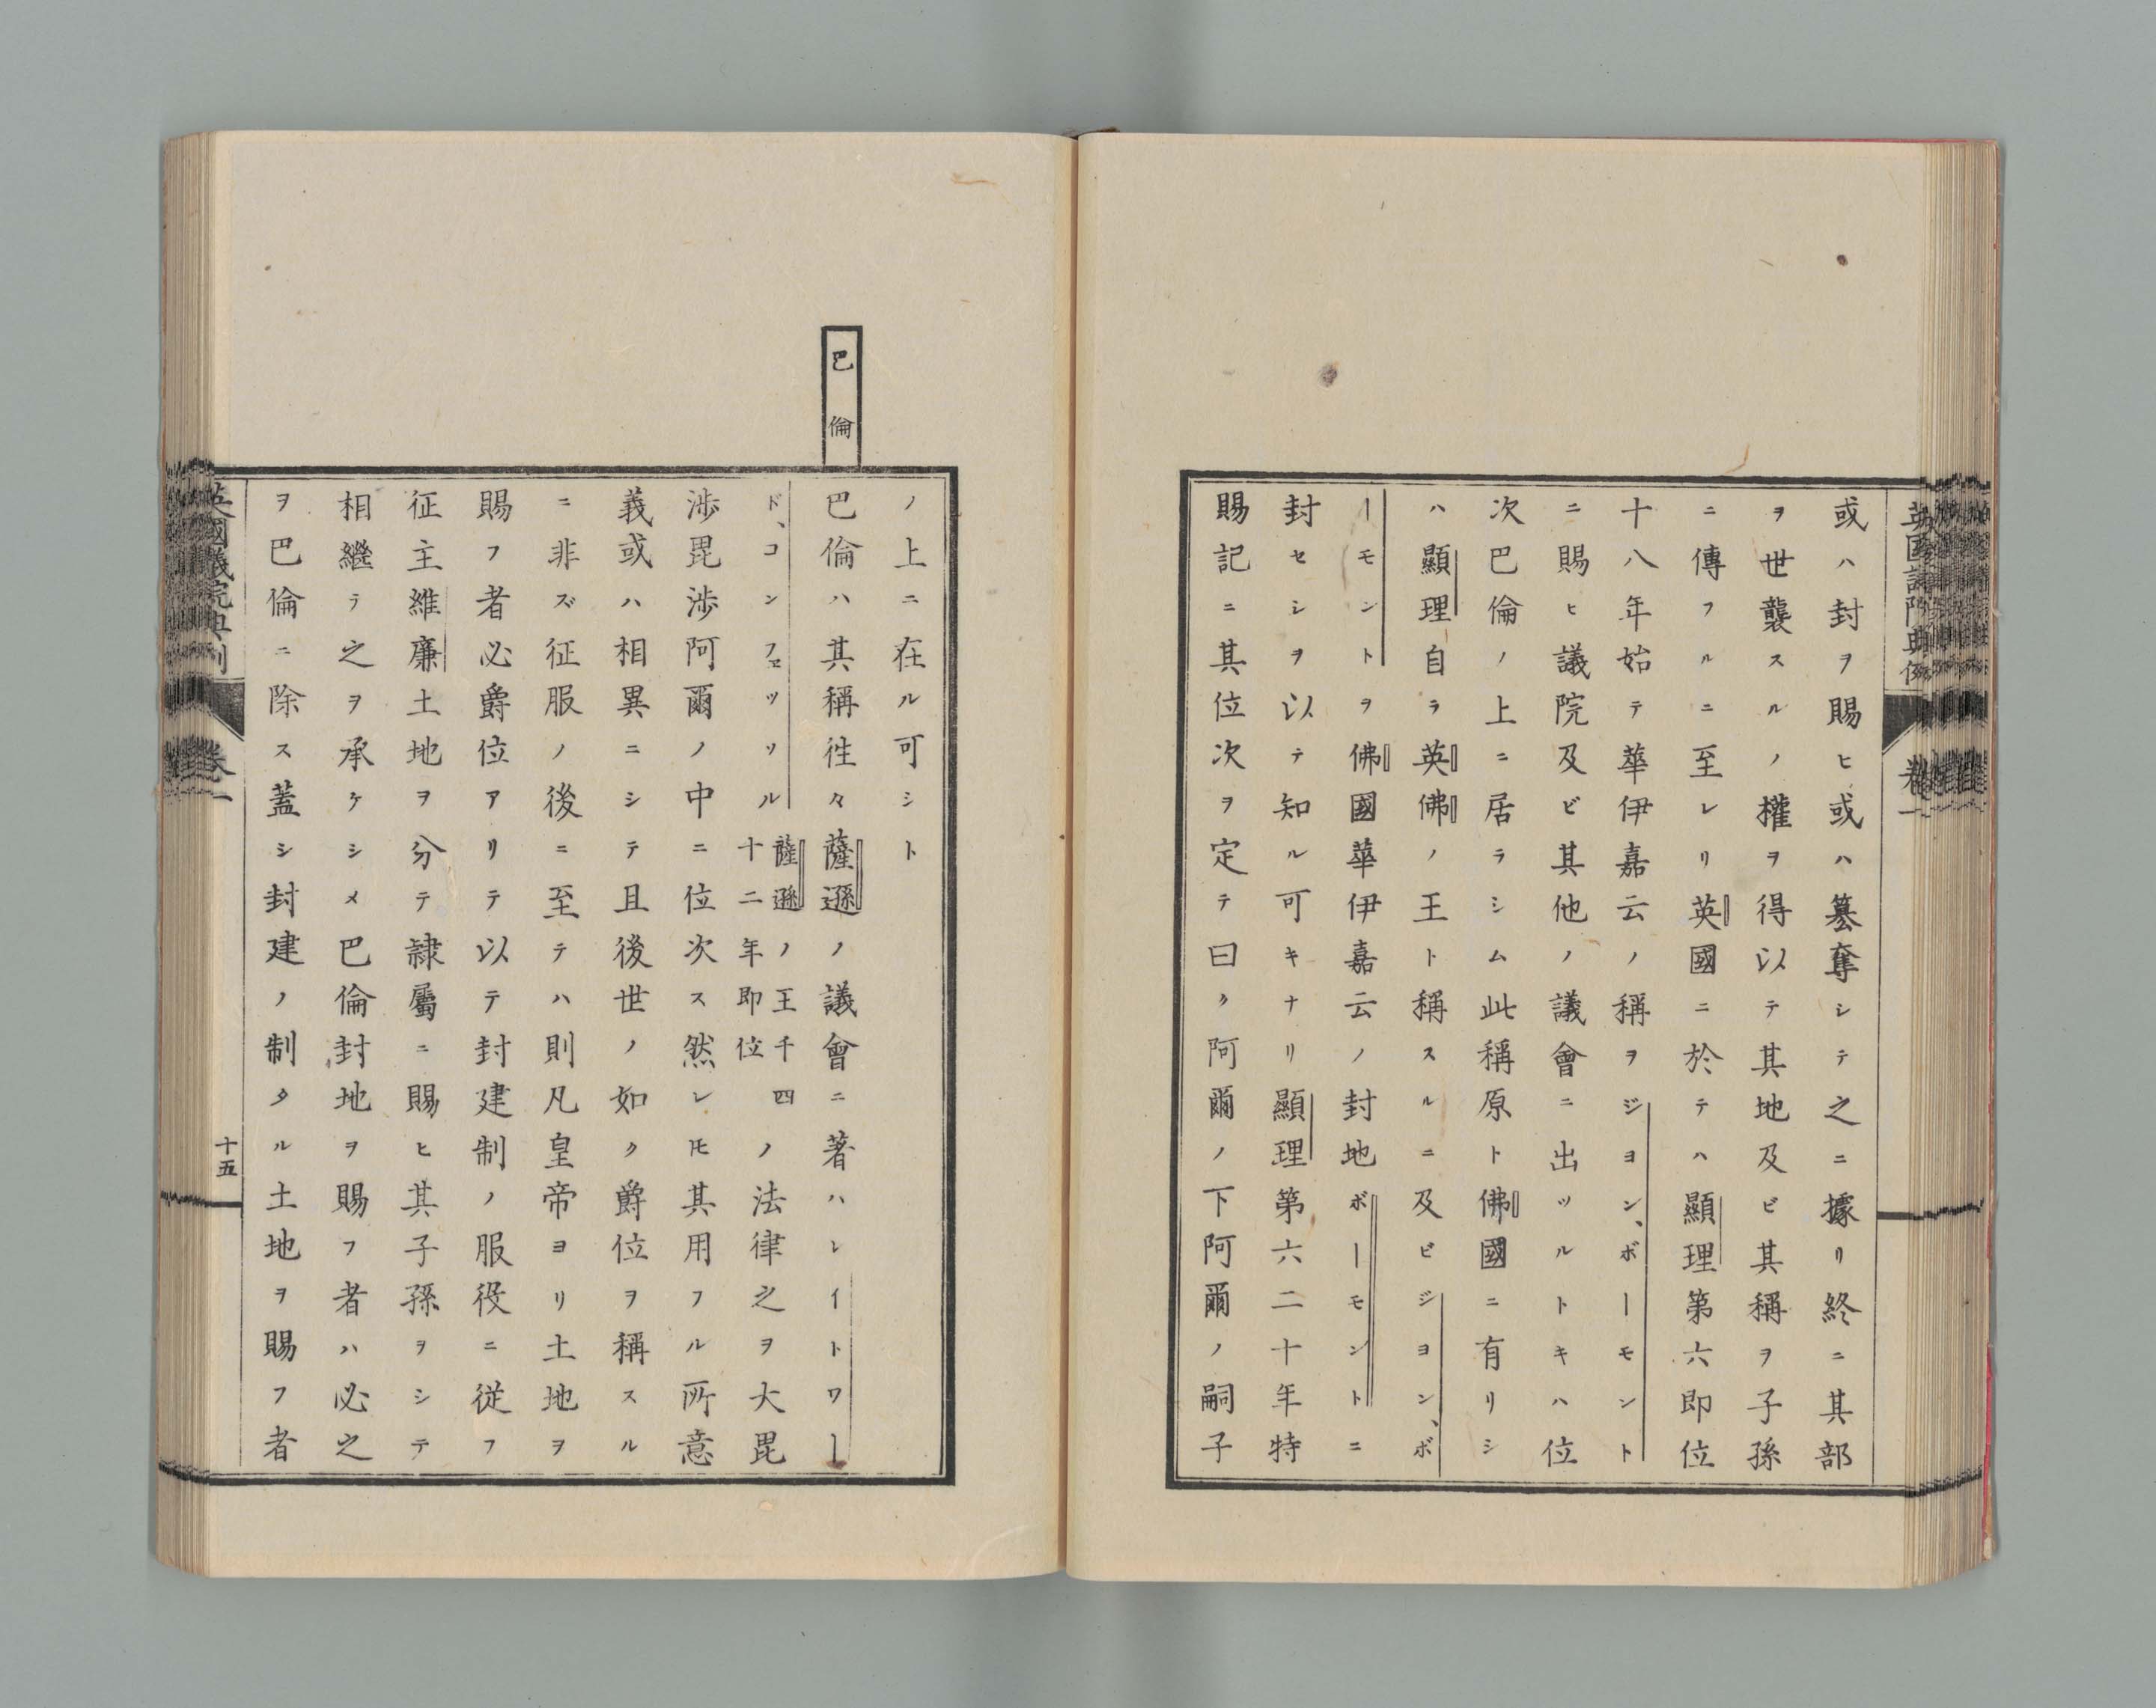 英國議院典例
卷一
或ハ封ヲ賜ヒ或ハ簒奪シテ之ニ據リ終ニ其部
ヲ世襲スルノ權ヲ得以テ其地及ビ其稱ヲ子孫
ニ傳フルニ至レリ英國ニ於テハ顯理第六即位
十八年始テ華伊嘉云ノ稱ヲジヨン、ボーモント
ニ賜ヒ議院及ビ其他ノ議會ニ出ツルトキハ位
次巴倫ノ上ニ居ラシム此稱原ト佛國ニ有リシ
ハ顯理自ラ英佛ノ王ト稱スルニ及ビジヨン、ボ
ーモントヲ佛國華伊嘉云ノ封地ボーモントニ
封セシヲ以テ知ル可キナリ顯理第六二十年特
賜記ニ其位次ヲ定テ曰ク阿爾ノ下阿爾ノ嗣子
ノ上ニ在ル可シト
巴倫
巴倫ハ其稱徃々薩遜ノ議會ニ著ハレイトワー
ド、コンフェッソル薩遜ノ王千四十二年即位ノ法律之ヲ大毘
渉毘渉阿爾ノ中ニ位次ス然レ𪜈其用フル所意
義或ハ相異ニシテ且後世ノ如ク爵位ヲ稱スル
ニ非ズ征服ノ後ニ至テハ則凡皇帝ヨリ土地ヲ
賜フ者必爵位アリテ以テ封建制ノ服役ニ從フ
征主維廉土地ヲ分テ隷屬ニ賜ヒ其子孫ヲシテ
相繼テ之ヲ承ケシメ巴倫封地ヲ賜フ者ハ必之
ヲ巴倫ニ除ス蓋シ封建ノ制タル土地ヲ賜フ者
英國議院典例
卷一
十五